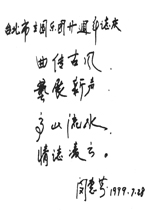 台北市立国乐团廿周年志庆
曲传古风
艺展新声
高山流水
情志凌云。
闵惠芬 1999.7.28